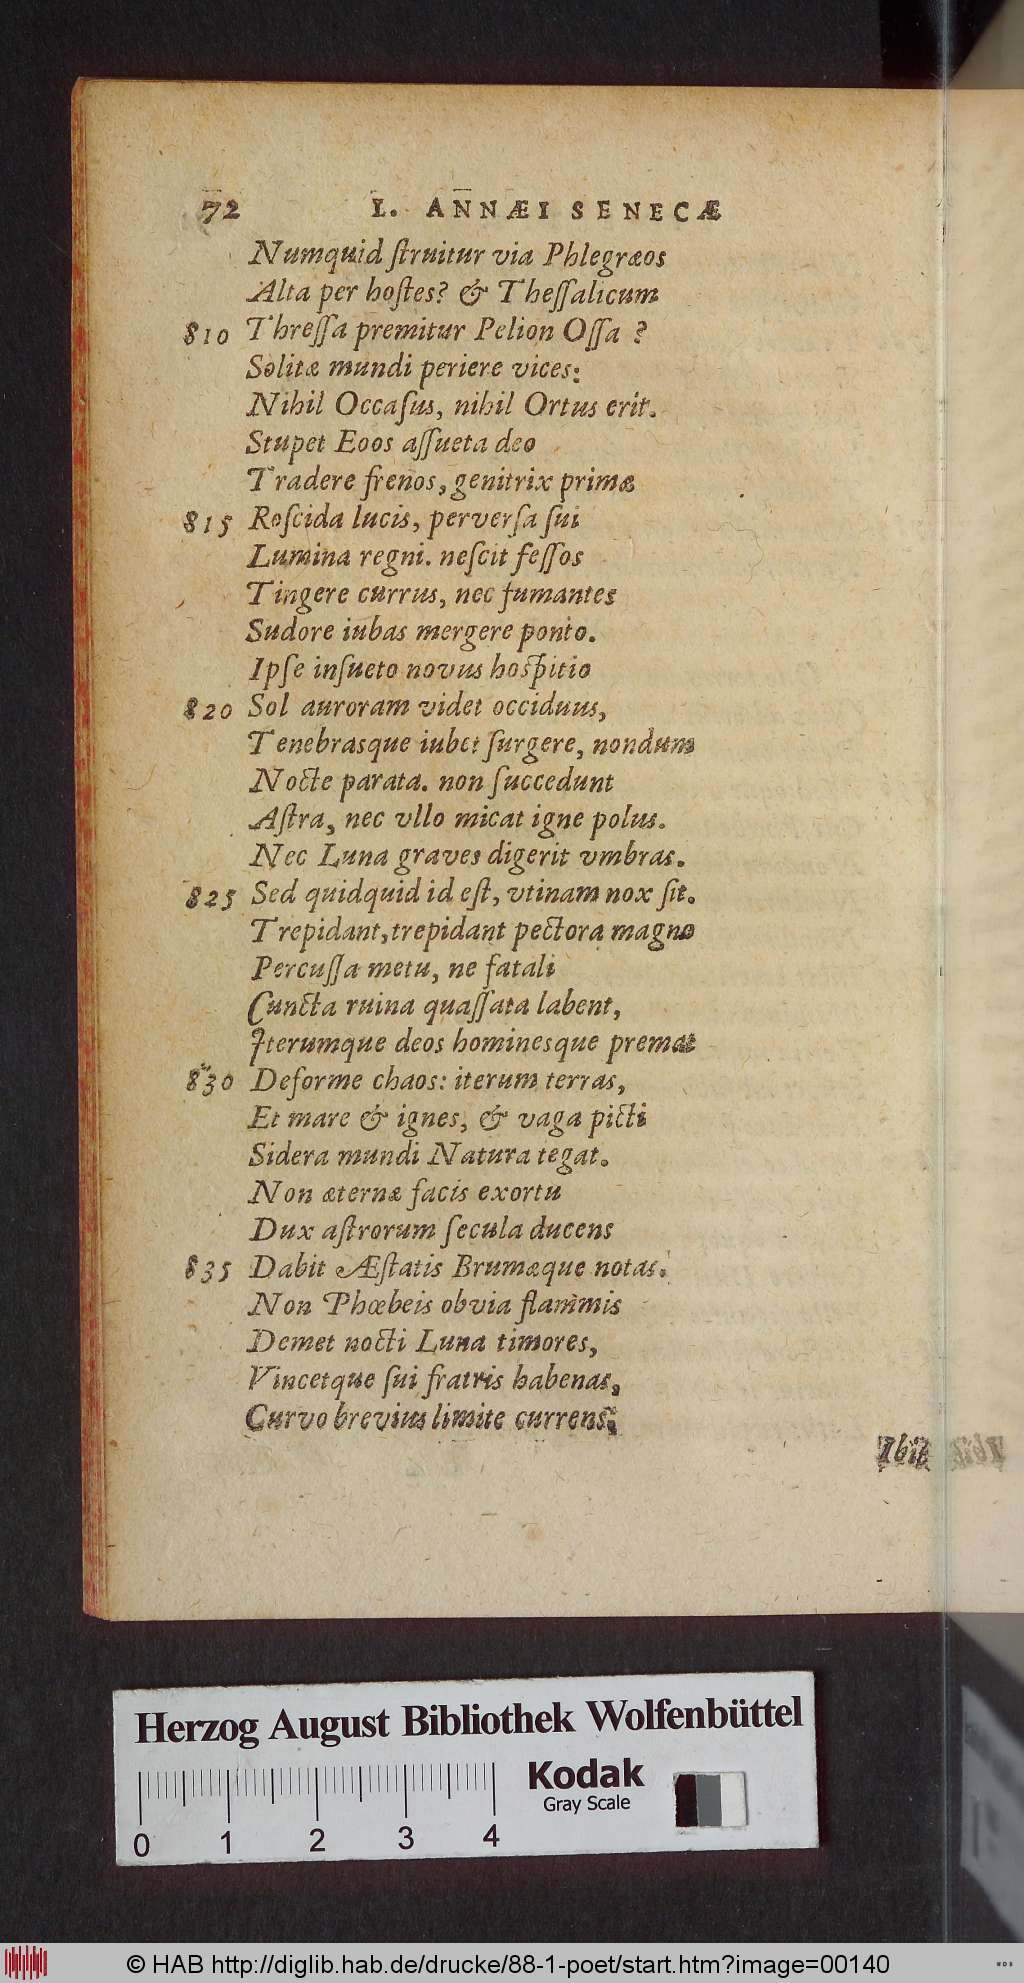 72 L. ANNÆI SENECÆ
Numquid ſtruitur via Phlegræos
Alta per hoſtes? & Theſſalicum
810 Threſſa premitur Pelion Oſſa ?
Solitæ mundi periere vices:
Nihil Occaſus, nihil Ortus erit.
Stupet Eoos aſſueta deo
Tradere frenos, genitrix primæ
815 Roſcida lucis, perverſa ſui
Lumina regni. neſcit feſſos
Tingere currus, nec fumantes
Sudore iubas mergere ponto.
Ipſe inſueto novus hoſpitio
820 Sol auroram videt occiduus,
Tenebrasque iubet ſurgere, nondum
Nocte parata. non ſuccedunt
Aſtra, nec vllo micat igne polus.
Nec Luna graves digerit vmbras.
825 Sed quidquid id eſt, vtinam nox ſit.
Trepidant, trepidant pectora magno
Percuſſa metu, ne fatali
Cuncta ruina quaſſata labent,
Iterumque deos hominesque premat
830 Deforme chaos: iterum terras,
Et mare & ignes, & vaga picti
Sidera mundi Natura tegat.
Non æternæ facis exortu
Dux aſtrorum ſecula ducens
835 Dabit Æſtatis Brumæque notas.
Non Phœbeis obvia flammis
Demet nocti Luna timores,
Vincetque ſui fratris habenas,
Curvo brevius limite currens:
Ibit
Herzog August Bibliothek Wolfenbüttel
Kodak
Gray Scale
0 1 2 3 4
© HAB http://diglib.hab.de/drucke/88-1-poet/start.htm?image=00140